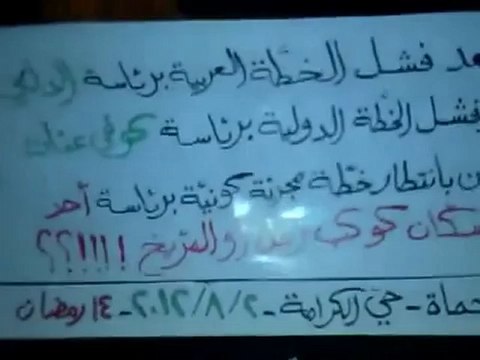 بعد فشل الخطّة العربية برئاسة الدابي
وفشل الخطّة الدولية برئاسة كوفي عنان
بانتظار خطّة مجرتة كونيّة برئاسة أحد
سكان كوكب والمرّيخ !!!!؟؟
حماة - حيّ الكرامة - ٢٠١٢/٨/٢ - ١٤ رمضان